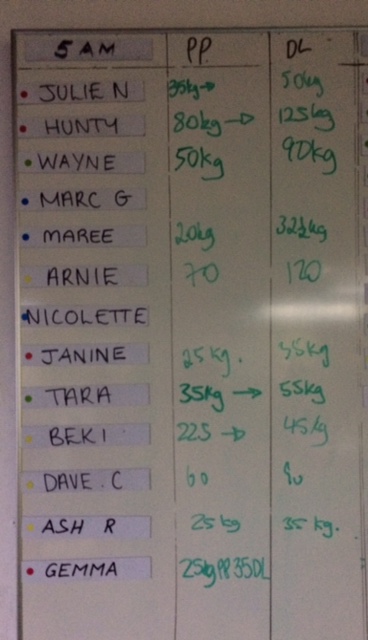 5 AM PP DL
JULIE N 35kg→ 50kg
HUNTY 80kg → 125kg
WAYNE 50kg 90kg
MARC G
MAREE 20kg 32½kg
ARNIE 70 120
NICOLETTE
JANINE 25kg. 35kg
TARA 35kg → 55kg
BEKI 225 → 45kg
DAVE.C 60
ASH R 25kg 35kg.
GEMMA 25kg PP 35DL